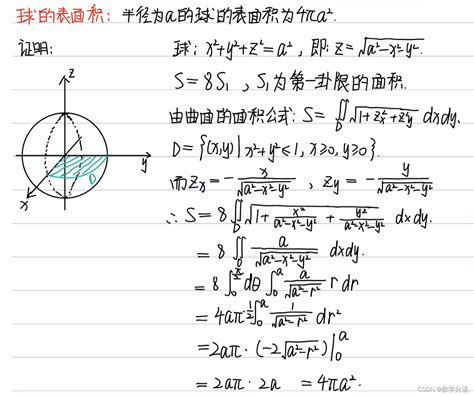 球的表面积: 半径为a的球的表面积为4πa².
证明:
球: x²+y²+z²=a², 即: z=√(a²-x²-y²).
S=8S₁, S₁为第一卦限的面积.
由曲面的面积公式: S=∬_D √(1+z²ₓ+z²ᵧ) dxdy.
D={(x,y)|x²+y²≤1, x≥0, y≥0}.
而zₓ=-x/√(a²-x²-y²), zᵧ=-y/√(a²-x²-y²)
∴ S=8∬_D √(1+x²/(a²-x²-y²)+y²/(a²-x²-y²)) dxdy.
=8∬_D a/√(a²-x²-y²) dxdy.
=8∫₀^(π/2) dθ ∫₀^a a/√(a²-r²) r dr
=4aπ·½∫₀^a 1/√(a²-r²) dr²
=2aπ·(-2√(a²-r²))|₀^a
=2aπ·2a =4πa².
z
y
x
D
CSDN @数学分源